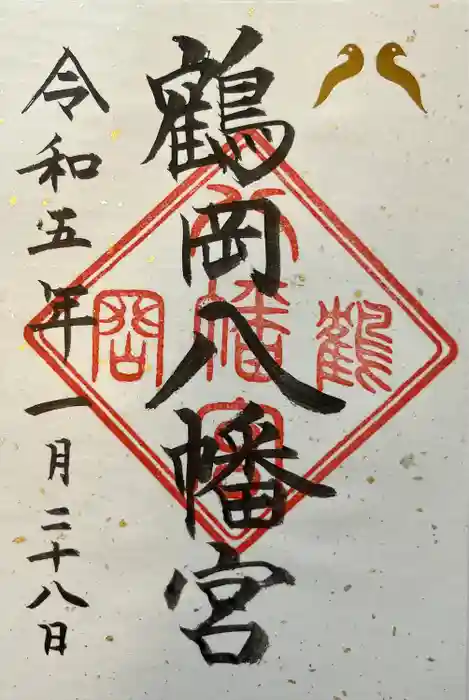 鶴岡八幡宮
令和五年一月二十八日
鶴岡
八幡宮